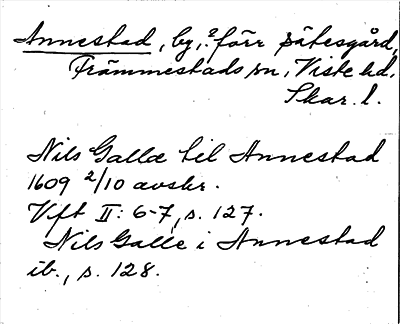 Annestad, by, ? förr sätesgård,
Främmestads sn, Viste hd,
Skar. l.
Nils Galle til Annestad
1609 2/10 avskr.
Vft II: 6-7, s. 127.
Nils Galle i Annestad
ib., s. 128.